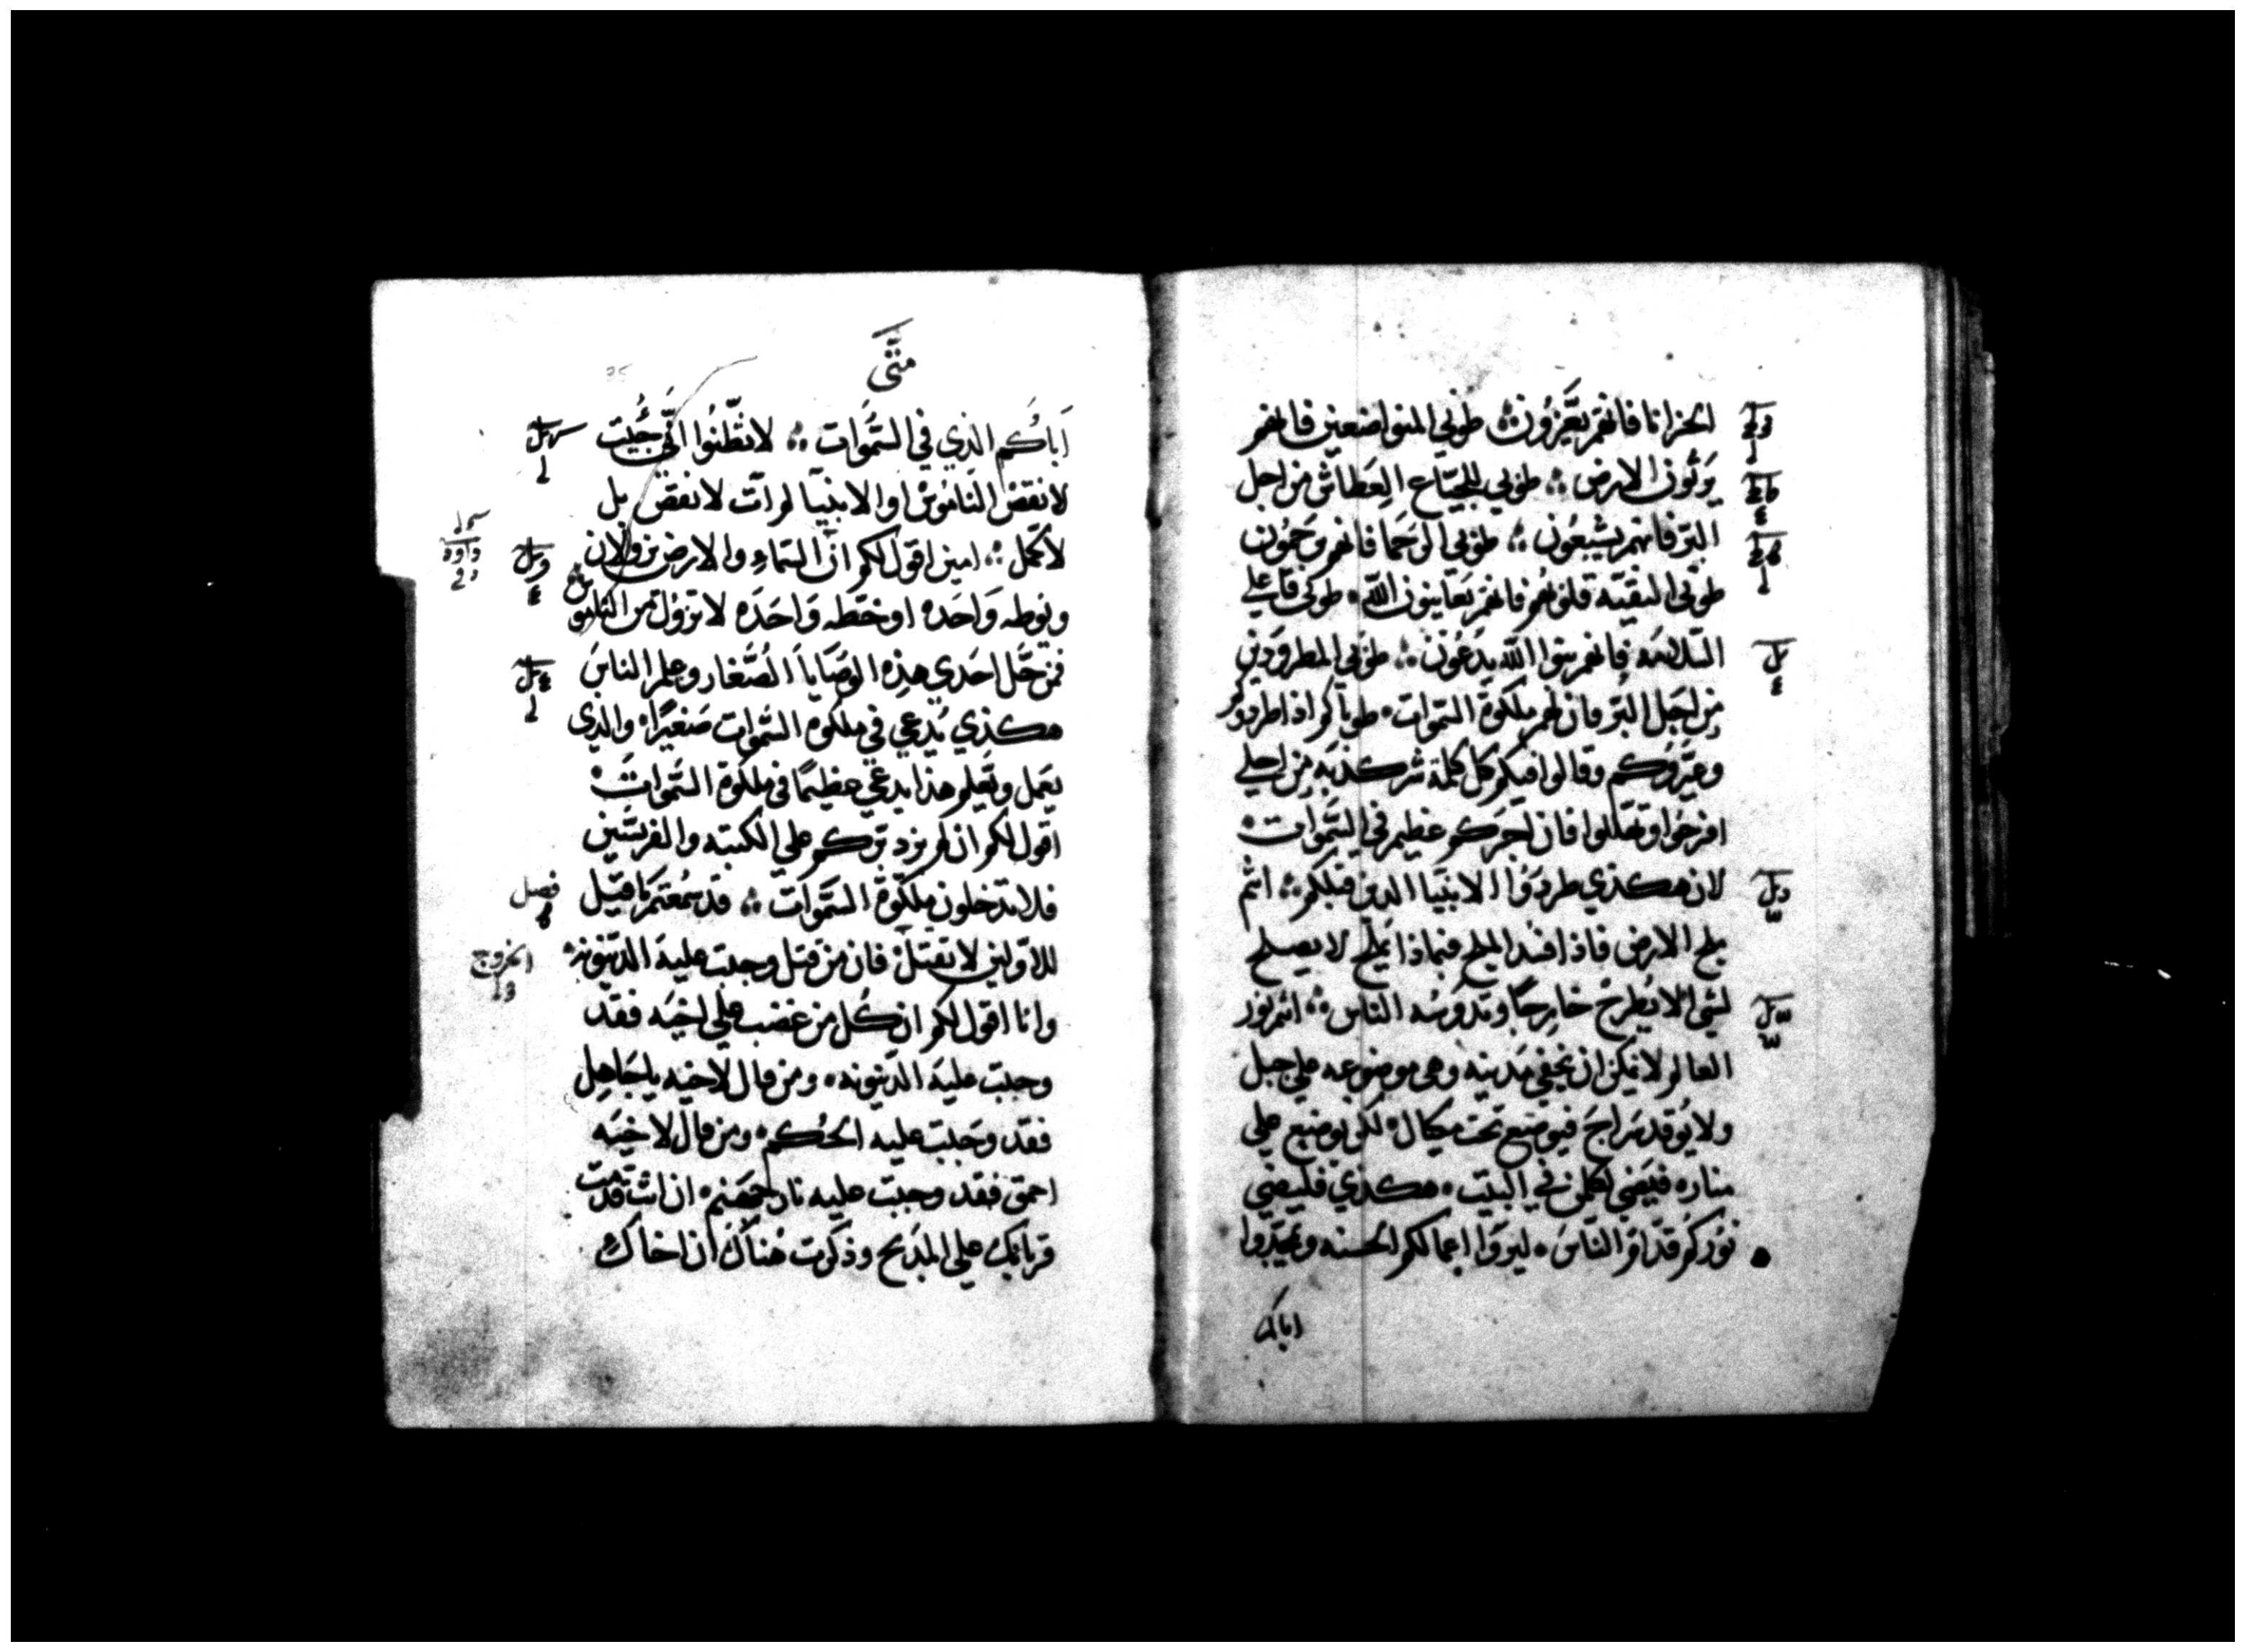 الحزانا فانهم يعزون ⁘ طوبي المتواضعين فانهم
يرثون الارض ⁘ طوبي للجياع العطاش من اجل
البر فانهم يشبعون ⁘ طوبي الرحما فانهم يرحمون
طوبي النقيه قلوبهم فانهم يعاينون الله • طوبي فاعلي
السلامه فانهم بنوا الله يدعون ⁘ طوبي المطرودين
من اجل البر فان لهم ملكوة السموات • طوباكم اذا طردوكم
وعيروكم وقالوا فيكم كل كلمة شر كذبه من اجلي
افرحوا وتهللوا فان اجركم عظيم في السموات •
لان هكذي طردوا الانبيا الدين قبلكم ⁘ انتم
ملح الارض فاذا افسد الملح فبماذا يملح لا يصلح
لشي الا يطرح خارجا وتدوسه الناس ⁘ انتم نور
العالم لا يمكن ان تخفي مدينه وهي موضوعه علي جبل
ولا يوقد سراج فيوضع تحت مكيال • لكن يوضع علي
مناره فيضي لكلمن في البيت • هكدي فليضي
نوركم قدام الناس • ليروا اعمالكم الحسنه ويمجدوا
اباكم
متى
35
اباكم الذي في السموات ⁘ لا تظنوا اني جيت
لانقض الناموس او الانبيا لم ات لانقض بل
لاكمل ⁘ امين اقول لكم ان السماء والارض تزولان
ونوطه واحده او خطه واحده لا تزول من الناموس
فمن حل احدي هذه الوصايا الصغار وعلم الناس
هكذي يدعي في ملكوة السموات صغيرا • والدي
يعمل ويعلم هذا يدعي عظيما في ملكوة السموات •
اقول لكم ان لم يزد بركم علي الكتبه والفريسين
فلا تدخلون ملكوة السموات ⁘ قد سمعتم ما قيل
فصل
للاولين لا تقتل فان من قتل وجبت عليه الدينونه •
الخروج
وانا اقول لكم ان كل من غضب علي اخيه فقد
وجبت عليه الدينونه • ومن قال لاخيه يا جاهل
فقد وجبت عليه الحكم • ومن قال لاخيه
احمق فقد وجبت عليه نار جهنم • ان انت قدمت
قربانك علي المذبح وذكرت هناك ان اخاك